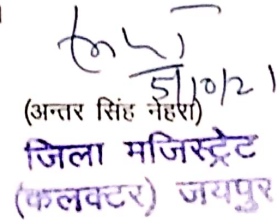 5/10/21
(अन्तर सिंह नेहरा)
जिला मजिस्ट्रेट
(कलक्टर) जयपुर